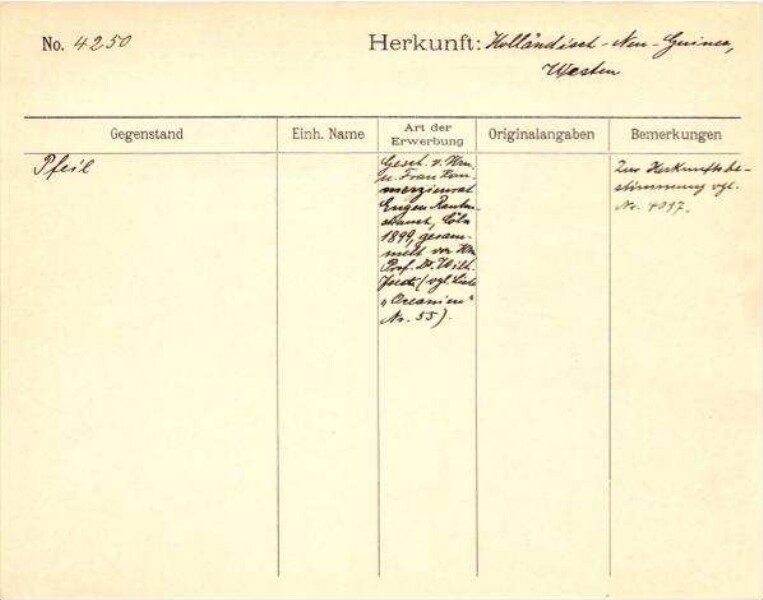 No. 4250
Herkunft: Holländisch-Neu-Guinea,
Westen
Gegenstand
Einh. Name
Art der
Erwerbung
Originalangaben
Bemerkungen
Pfeil
Gesch. v. Hrn.
u. Frau Kom-
merzienrat
Eugen Rauten-
strauch, Cöln
1899, gesam-
melt von Hrn
Prof. Dr. Wilh.
Joest (vgl. Liste
"Oceanien"
Nr. 55).
Zur Herkunftsbe-
stimmung vgl.
Nr. 4097.